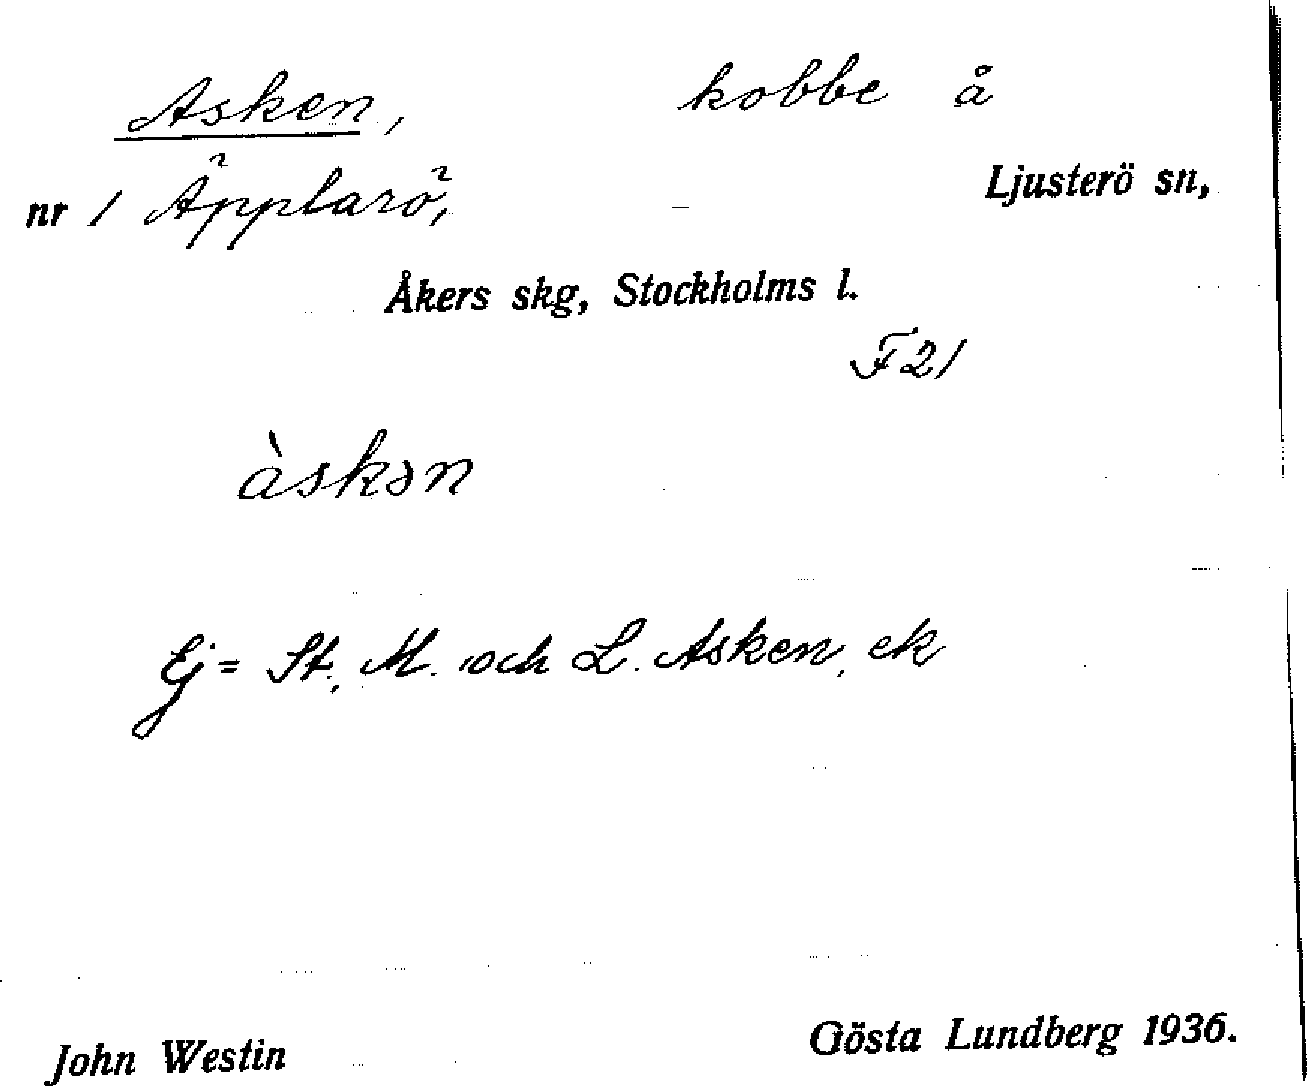 Asken, kobbe å
nr 1 Äpplarö, Ljusterö sn,
Åkers skg, Stockholms l.
F21
àskən
Ej = St., M. och L. Asken, ek
John Westin Gösta Lundberg 1936.